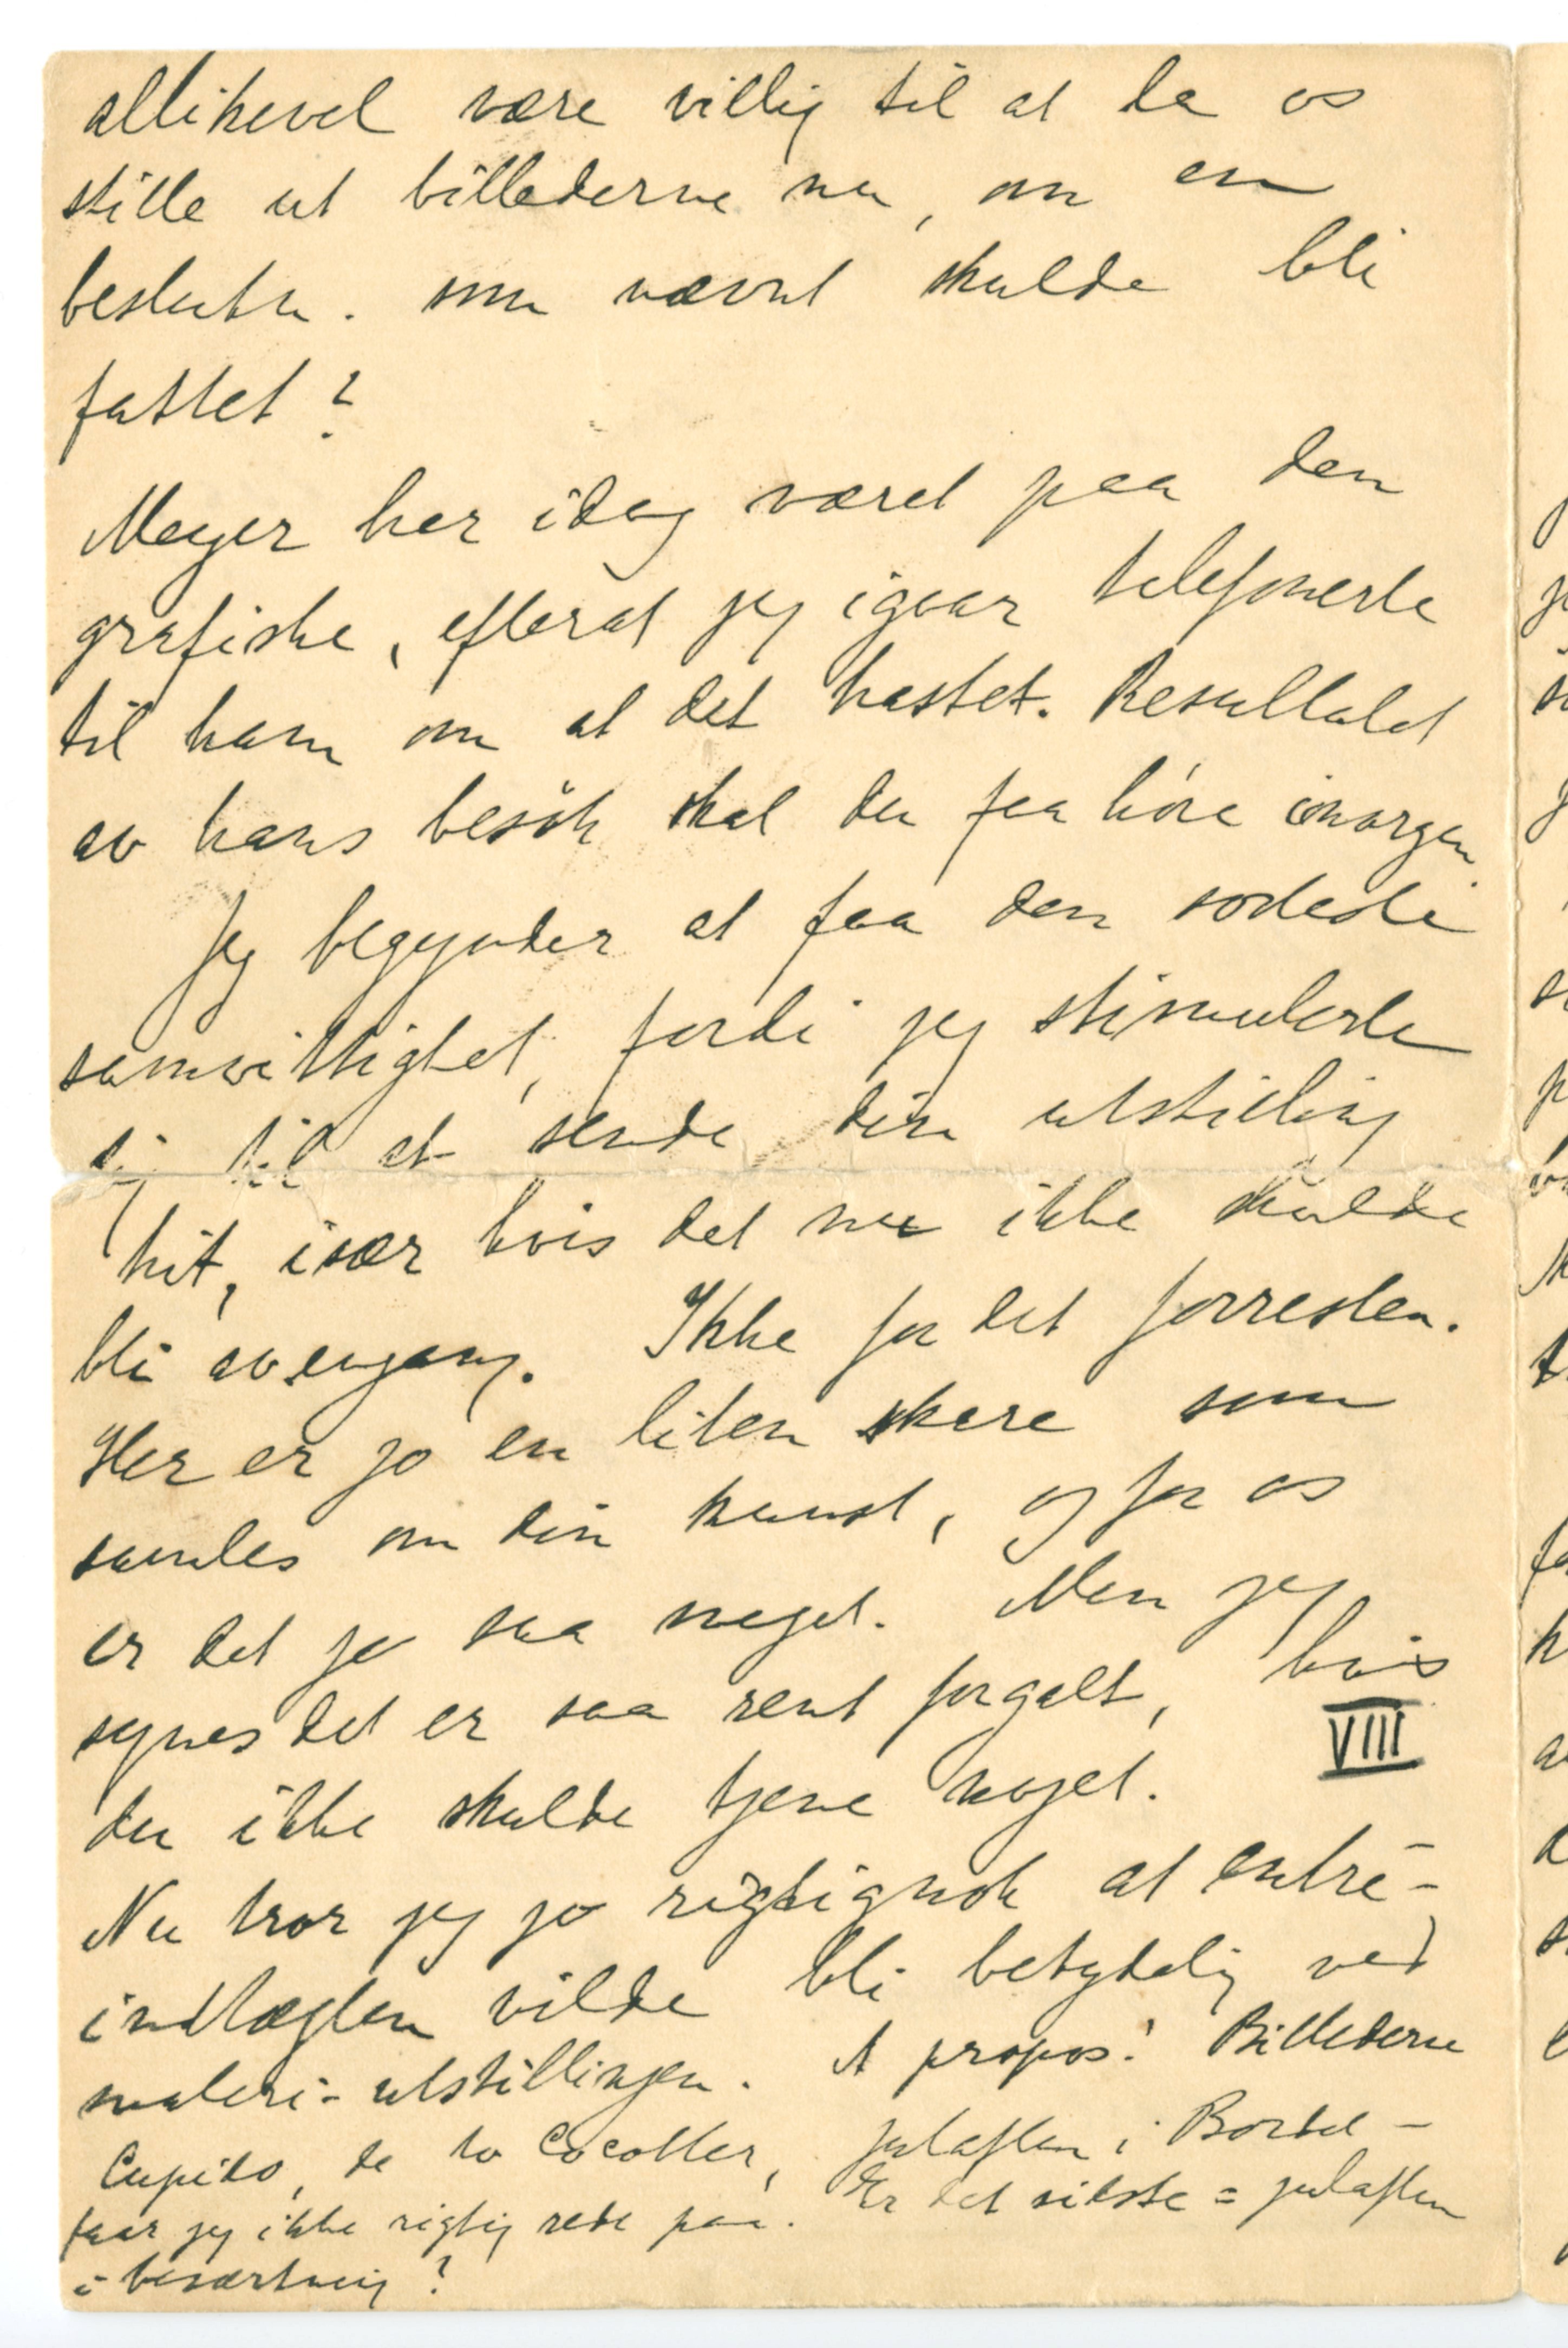 allikevel være villig til at la os
stille ut billederne nu, om en
beslutn. som nævnt skulde bli
fattet?
Meyer har idag været paa den
grafiske, efterat jeg igaar telefonerte
til ham om at det hastet. Resultatet
av hans besøk skal du faa høre imorgen
Jeg begynder at faa den sorteste
samvittighet, fordi jeg stimulerte
dig til at sende din utstilling
hit, især hvis det nu ikke skulde
bli avengang. Ikke for det forresten.
Her er jo en liten skare som
samles om din kunst, og for os
er det jo saa meget. Men jeg
synes det er saa rent forgalt, hvis
VIII
du ikke skulde tjene noget.
Nu tror jeg jo rigtignok at entré-
indtægten vilde bli betydelig ved
maleri-utstillingen. A propos! Billederne
Cupido, de to Cocotter, julaften i Bordel -
faar jeg ikke rigtig rede paa. Er det sidste = julaften
i